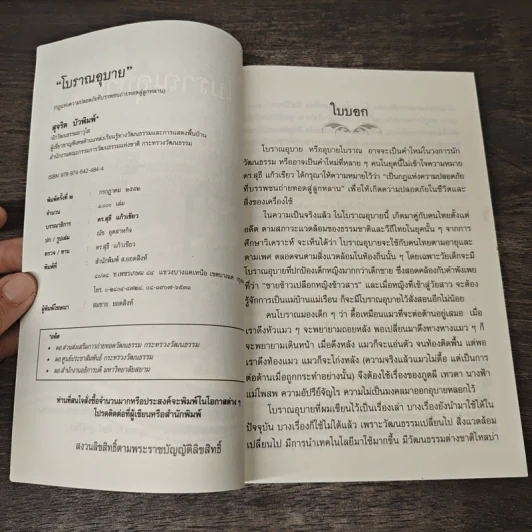 "โบราณอุบาย"
(กฎแห่งความปลอดภัยที่บรรพชนถ่ายทอดสู่ลูกหลาน)
สุจริต บัวพิมพ์*
นักวัฒนธรรมอาวุโส
ผู้เชี่ยวชาญพิเศษด้านแหล่งเรียนรู้ทางวัฒนธรรมและการแสดงพื้นบ้าน
สำนักงานคณะกรรมการวัฒนธรรมแห่งชาติ กระทรวงวัฒนธรรม
ISBN 978-974-642-484-4
พิมพ์ครั้งที่ ๒ : กรกฎาคม ๒๕๕๒
จำนวน : ๑,๐๐๐ เล่ม
บรรณาธิการ : ดร.สุธี แก้วเขียว
ปก / รูปเล่ม : ณัช อุตสาหกิจ
ตรวจ / ทาน : ดร.สุธี แก้วเขียว
พิมพ์ที่ : สำนักพิมพ์ ส.ยอดสิงห์
ผู้พิมพ์โฆษณา : สมชาย ยอดสิงห์
*อดีต
• ผอ.ส่วนส่งเสริมการถ่ายทอดวัฒนธรรม กระทรวงวัฒนธรรม
• ผอ.ศูนย์ประชาสัมพันธ์ กระทรวงวัฒนธรรม
• ผอ.สำนักอธิการบดี มหาวิทยาลัยสยาม
ท่านที่สนใจสั่งซื้อจำนวนมากหรือประสงค์จะพิมพ์ในโอกาสต่าง ๆ
โปรดติดต่อที่ผู้เขียนหรือสำนักพิมพ์
สงวนลิขสิทธิ์ตามพระราชบัญญัติลิขสิทธิ์
ใบบอก
โบราณอุบาย หรืออุบายโบราณ อาจจะเป็นคำใหม่ในวงการนัก
วัฒนธรรม หรืออาจเป็นคำใหม่ที่หลาย ๆ คนในยุคนี้ไม่เข้าใจความหมาย
ดร.สุธี แก้วเขียว ได้กรุณาให้ความหมายไว้ว่า "เป็นกฎแห่งความปลอดภัย
ที่บรรพชนถ่ายทอดสู่ลูกหลาน" เพื่อให้เกิดความปลอดภัยในชีวิตและ
สิ่งของเครื่องใช้
ในความเป็นจริงแล้ว ในโบราณอุบายนี้ เกิดมาคู่กับคนไทยตั้งแต่
อดีต ตามสภาวะแวดล้อมของธรรมชาติและวิถีไทยในยุคนั้น ๆ จากการ
ศึกษาวิเคราะห์ จะเห็นได้ว่า โบราณอุบายจะใช้กับคนไทยตามอายุและ
ตามเพศ ตลอดจนตามสิ่งแวดล้อมในท้องถิ่นนั้น ๆ โดยเฉพาะวัยเด็กจะมี
โบราณอุบายที่ปกป้องเด็กหญิงมากกว่าเด็กชาย ซึ่งสอดคล้องกับคำพังเพย
ที่ว่า "ชายข้าวเปลือกหญิงข้าวสาร" และเมื่อหญิงที่เข้าสู่วัยสาว จะต้อง
รู้จักการเป็นแม่บ้านแม่เรือน ก็จะมีโบราณอุบายไว้สั่งสอนอีกไม่น้อย
คนโบราณมองเด็ก ๆ ว่า ดื้อเหมือนแมวที่จะต่อต้านอยู่เสมอ เมื่อ
เราดึงหัวแมว ๆ จะพยายามถอยหลัง พอเปลี่ยนมาดึงทางหางแมว ๆ ก็
จะพยายามเดินหน้า เมื่อดึงหลัง แมวก็จะแอ่นตัว จนท้องติดพื้น แต่พอ
เราดึงท้องแมว แมวก็จะโก่งหลัง (ความจริงแล้วแมวไม่ดื้อ แต่เป็นการ
ต่อต้านเมื่อถูกกระทำอย่างนั้น) จึงต้องใช้เรื่องของภูตผี เทวดา นางฟ้า
แม่โพสพ ความอัปรีย์จัญไร ความไม่เป็นมงคลมาออกอุบายหลอกไว้
โบราณอุบายที่ผมเขียนไว้เป็นเรื่องเล่า บางเรื่องยังนำมาใช้ได้ใน
ปัจจุบัน บางเรื่องก็ใช้ไม่ได้แล้ว เพราะวัฒนธรรมเปลี่ยนไป สิ่งแวดล้อม
เปลี่ยนไป มีการนำเทคโนโลยีมาใช้มากขึ้น มีวัฒนธรรมต่างชาติไหลบ่า